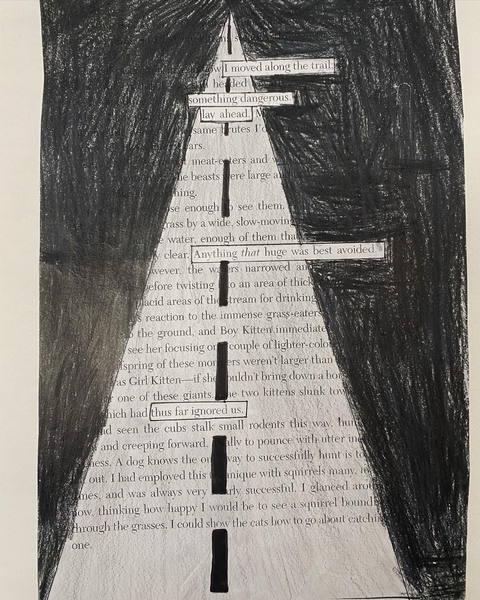 I moved along the trail.
he ded
something dangerous.
lay ahead.
same brutes I'
ars.
meat-eaters and w
he beasts were large a
hing.
se enough see them.
rass by a wide, slow-moving
water, enough of them tha
clear. Anything that huge was best avoided.
wever, the waters narrowed an
efore twisting to an area of thick
lacid areas of the stream for drinking
s reaction to the immense grass-eaters
the ground, and Boy Kitten immediate
see her focusing on couple of lighter-colo
spring of these mon ers weren't larger than
as Girl Kitten—if she ouldn't bring down a ho
r one of these giants. he two kittens slunk tow
hich had thus far ignored us.
d seen the cubs stalk small rodents this way, hun
and creeping forward, ally to pounce with utter ine
ness. A dog knows the on way to successfully hunt is to
out. I had employed this t nique with squirrels many,
mes, and was always very rly successful. I glanced aro
ow, thinking how happy I would be to see a squirrel bound
through the grasses. I could show the cats how to go about catchin
one.